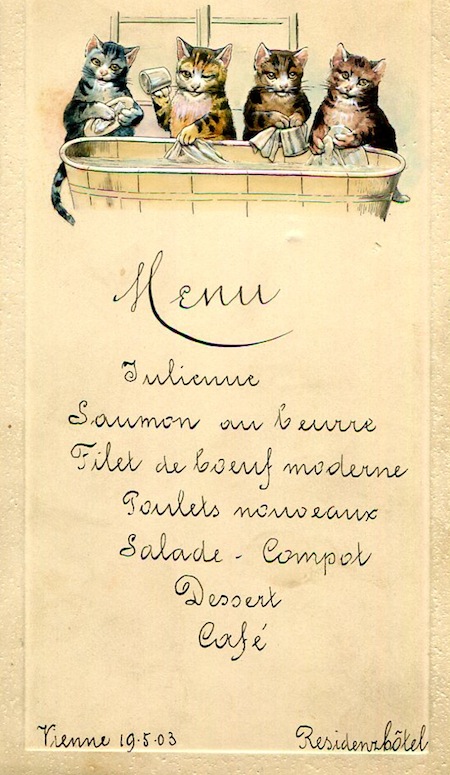 Menu
Julienne
Saumon au beurre
Filet de boeuf moderne
Poulets nouveaux
Salade - Compot
Dessert
Café
Vienne 19.5.03
Residenzhôtel